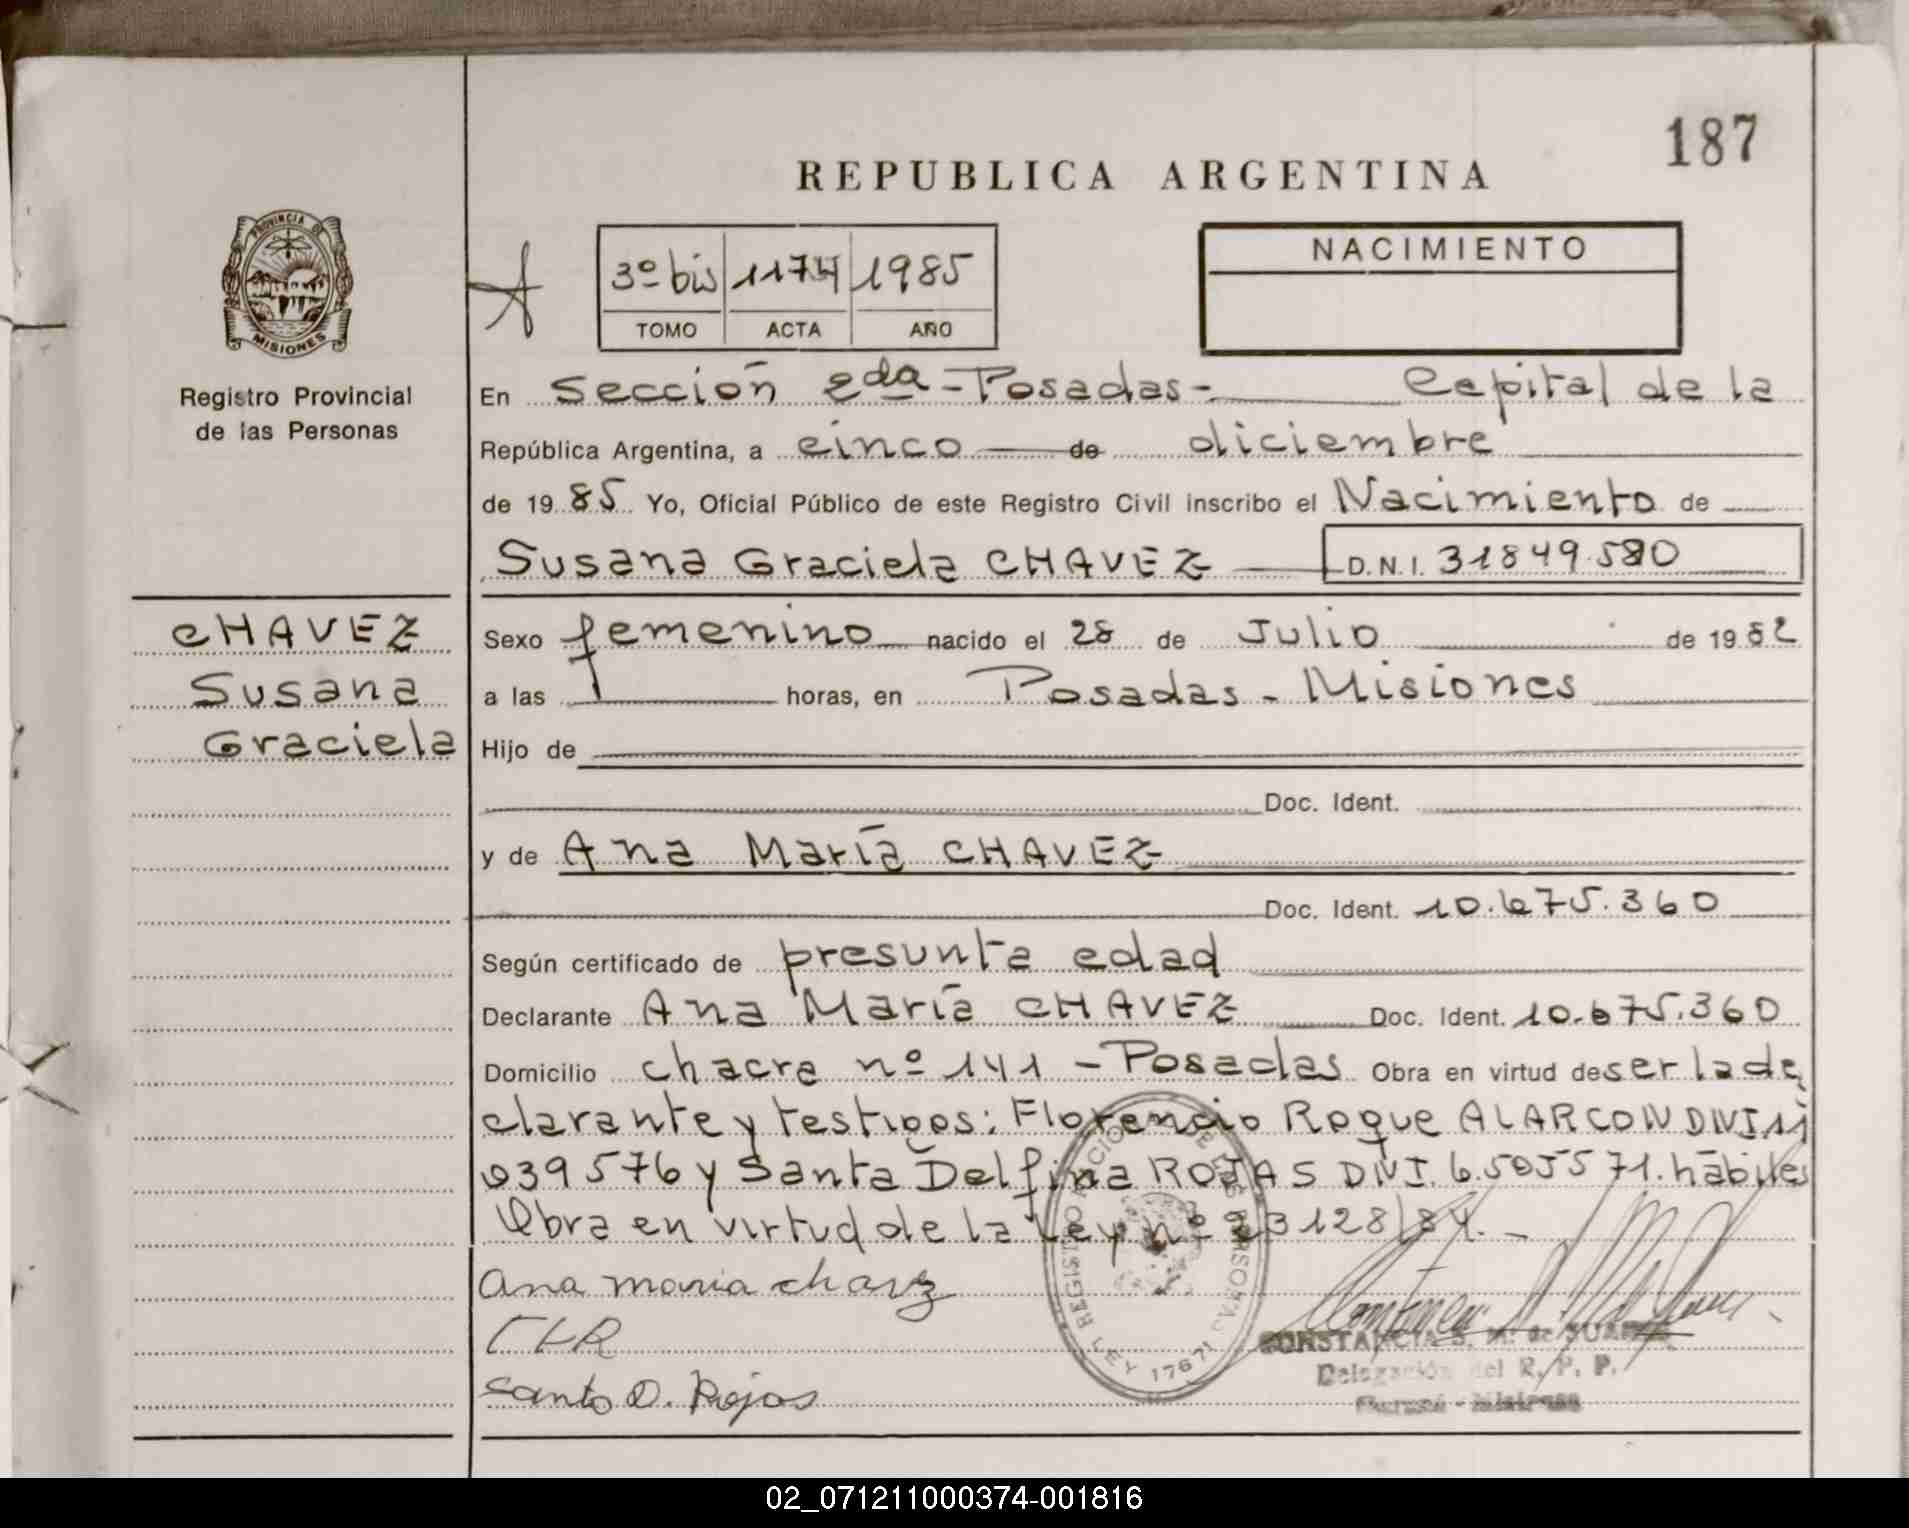 187
REPUBLICA ARGENTINA
PROVINCIA DE
MISIONES
Registro Provincial
de las Personas
3º bis 1174 1985
TOMO ACTA AÑO
NACIMIENTO
En Sección 2da - Posadas - Capital de la
República Argentina, a cinco de diciembre
de 1985 Yo, Oficial Público de este Registro Civil inscribo el Nacimiento de
Susana Graciela CHAVEZ D.N.I. 31849.580
CHAVEZ
Susana
Graciela
Sexo femenino nacido el 28 de Julio de 1982
a las horas, en Posadas - Misiones
Hijo de
Doc. Ident.
y de Ana María CHAVEZ
Doc. Ident. 10.675.360
Según certificado de presunta edad
Declarante Ana María CHAVEZ Doc. Ident. 10.675.360
Domicilio chacra nº 141 - Posadas Obra en virtud de ser la de
clarante y testigos: Florencio Roque ALARCON DNI
039576 y Santa Delfina ROJAS DNI. 6.505571. hábiles
Obra en virtud de la Ley nº 23128/84. -
Ana maria chavz
Santa D. Rojas
REGISTRO NACIONAL DE LAS PERSONAS
LEY 17671
CONSTANCIA S. M. de SUAREZ
Delegación del R. P. P.
02_071211000374-001816